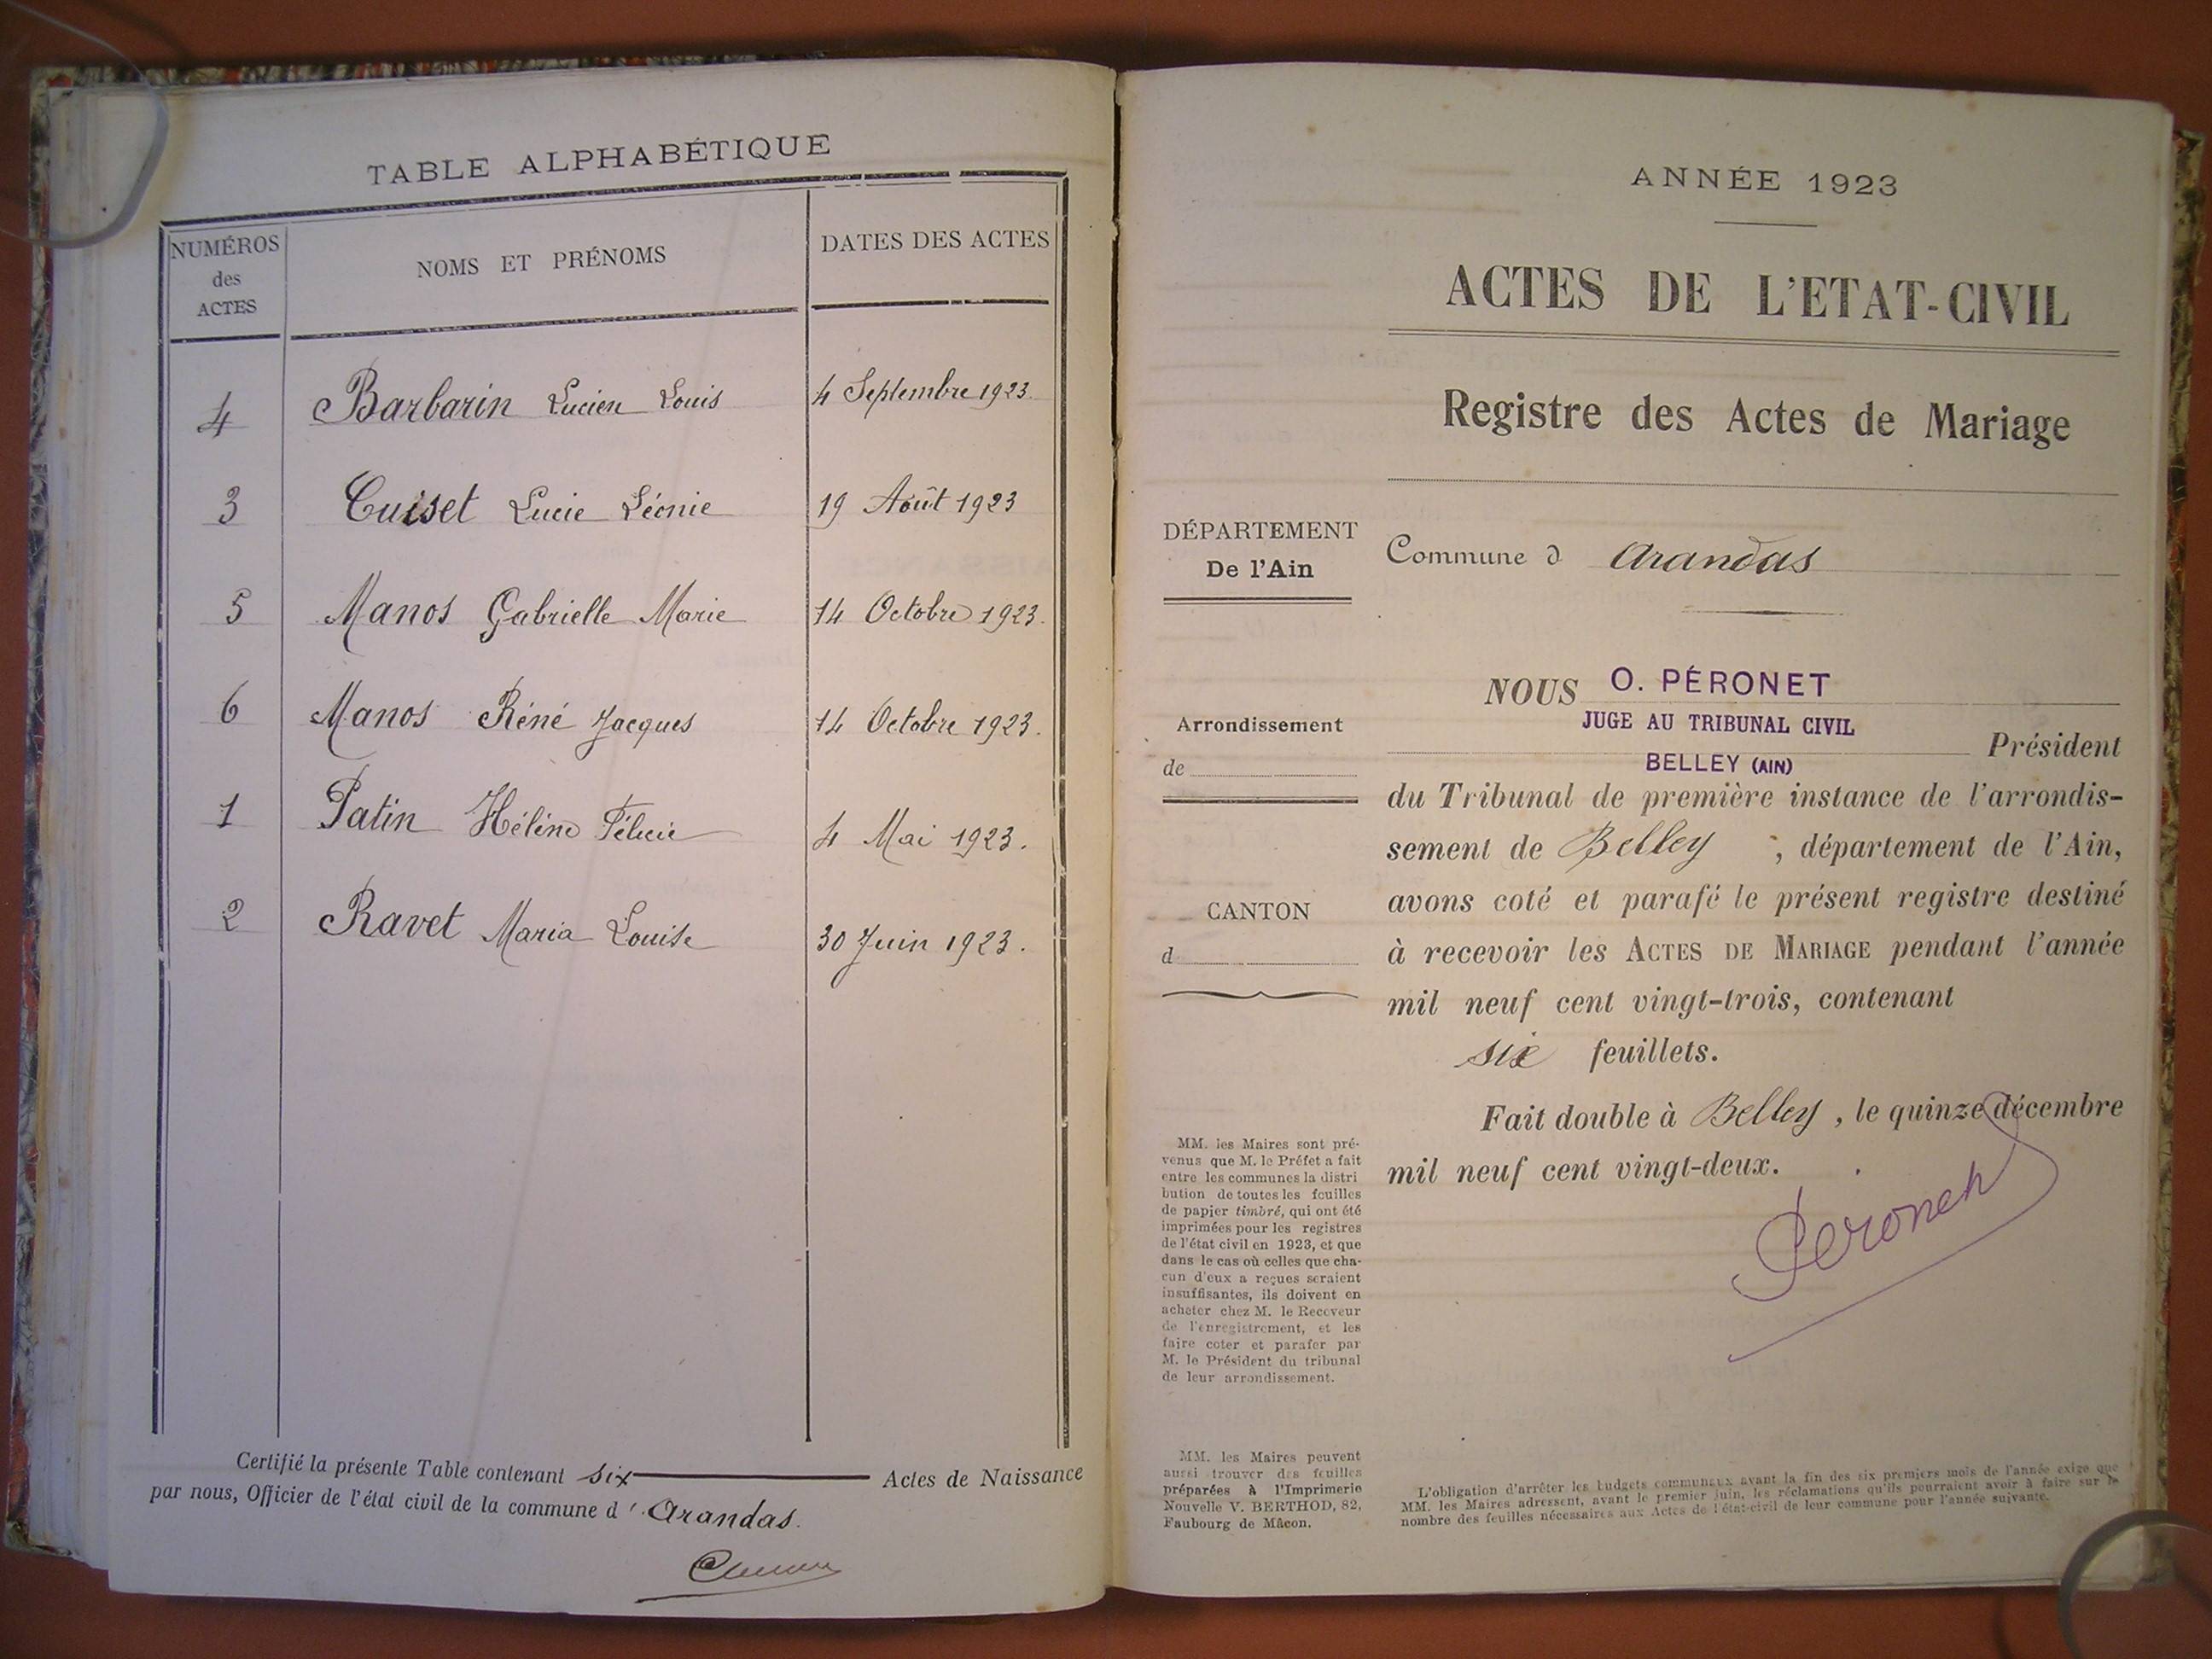 TABLE ALPHABÉTIQUE
NUMÉROS des ACTES
NOMS ET PRÉNOMS
DATES DES ACTES
4 Barbarin Lucien Louis 4 Septembre 1923.
3 Cuiset Lucie Léonie 19 Août 1923
5 Manos Gabrielle Marie 14 Octobre 1923.
6 Manos Réné Jacques 14 Octobre 1923.
1 Patin Hélène Félicie 4 Mai 1923.
2 Ravet Maria Louise 30 Juin 1923.
Certifié la présente Table contenant six Actes de Naissance
par nous, Officier de l'état civil de la commune d' Arandas.
ANNÉE 1923
ACTES DE L'ETAT-CIVIL
Registre des Actes de Mariage
DÉPARTEMENT
De l'Ain
Commune d Arandas
Arrondissement
de
CANTON
d
NOUS O. PÉRONET
JUGE AU TRIBUNAL CIVIL
Président
BELLEY (AIN)
du Tribunal de première instance de l'arrondis-
sement de Belley, département de l'Ain,
avons coté et parafé le présent registre destiné
à recevoir les ACTES DE MARIAGE pendant l'année
mil neuf cent vingt-trois, contenant
six feuillets.
Fait double à Belley, le quinze décembre
mil neuf cent vingt-deux.
Péronet
MM. les Maires sont pré-
venus que M. le Préfet a fait
entre les communes la distri
bution de toutes les feuilles
de papier timbré, qui ont été
imprimées pour les registres
de l'état civil en 1923, et que
dans le cas où celles que cha-
cun d'eux a reçues seraient
insuffisantes, ils doivent en
acheter chez M. le Receveur
de l'enregistrement, et les
faire coter et parafer par
M. le Président du tribunal
de leur arrondissement.
MM. les Maires peuvent
aussi trouver des feuilles
préparées à l'Imprimerie
Nouvelle V. BERTHOD, 82,
Faubourg de Mâcon.
L'obligation d'arrêter les budgets communaux avant la fin des six premiers mois de l'année exige que
MM. les Maires adressent, avant le premier juin, les réclamations qu'ils pourraient avoir à faire sur le
nombre des feuilles nécessaires aux Actes de l'état-civil de leur commune pour l'année suivante.